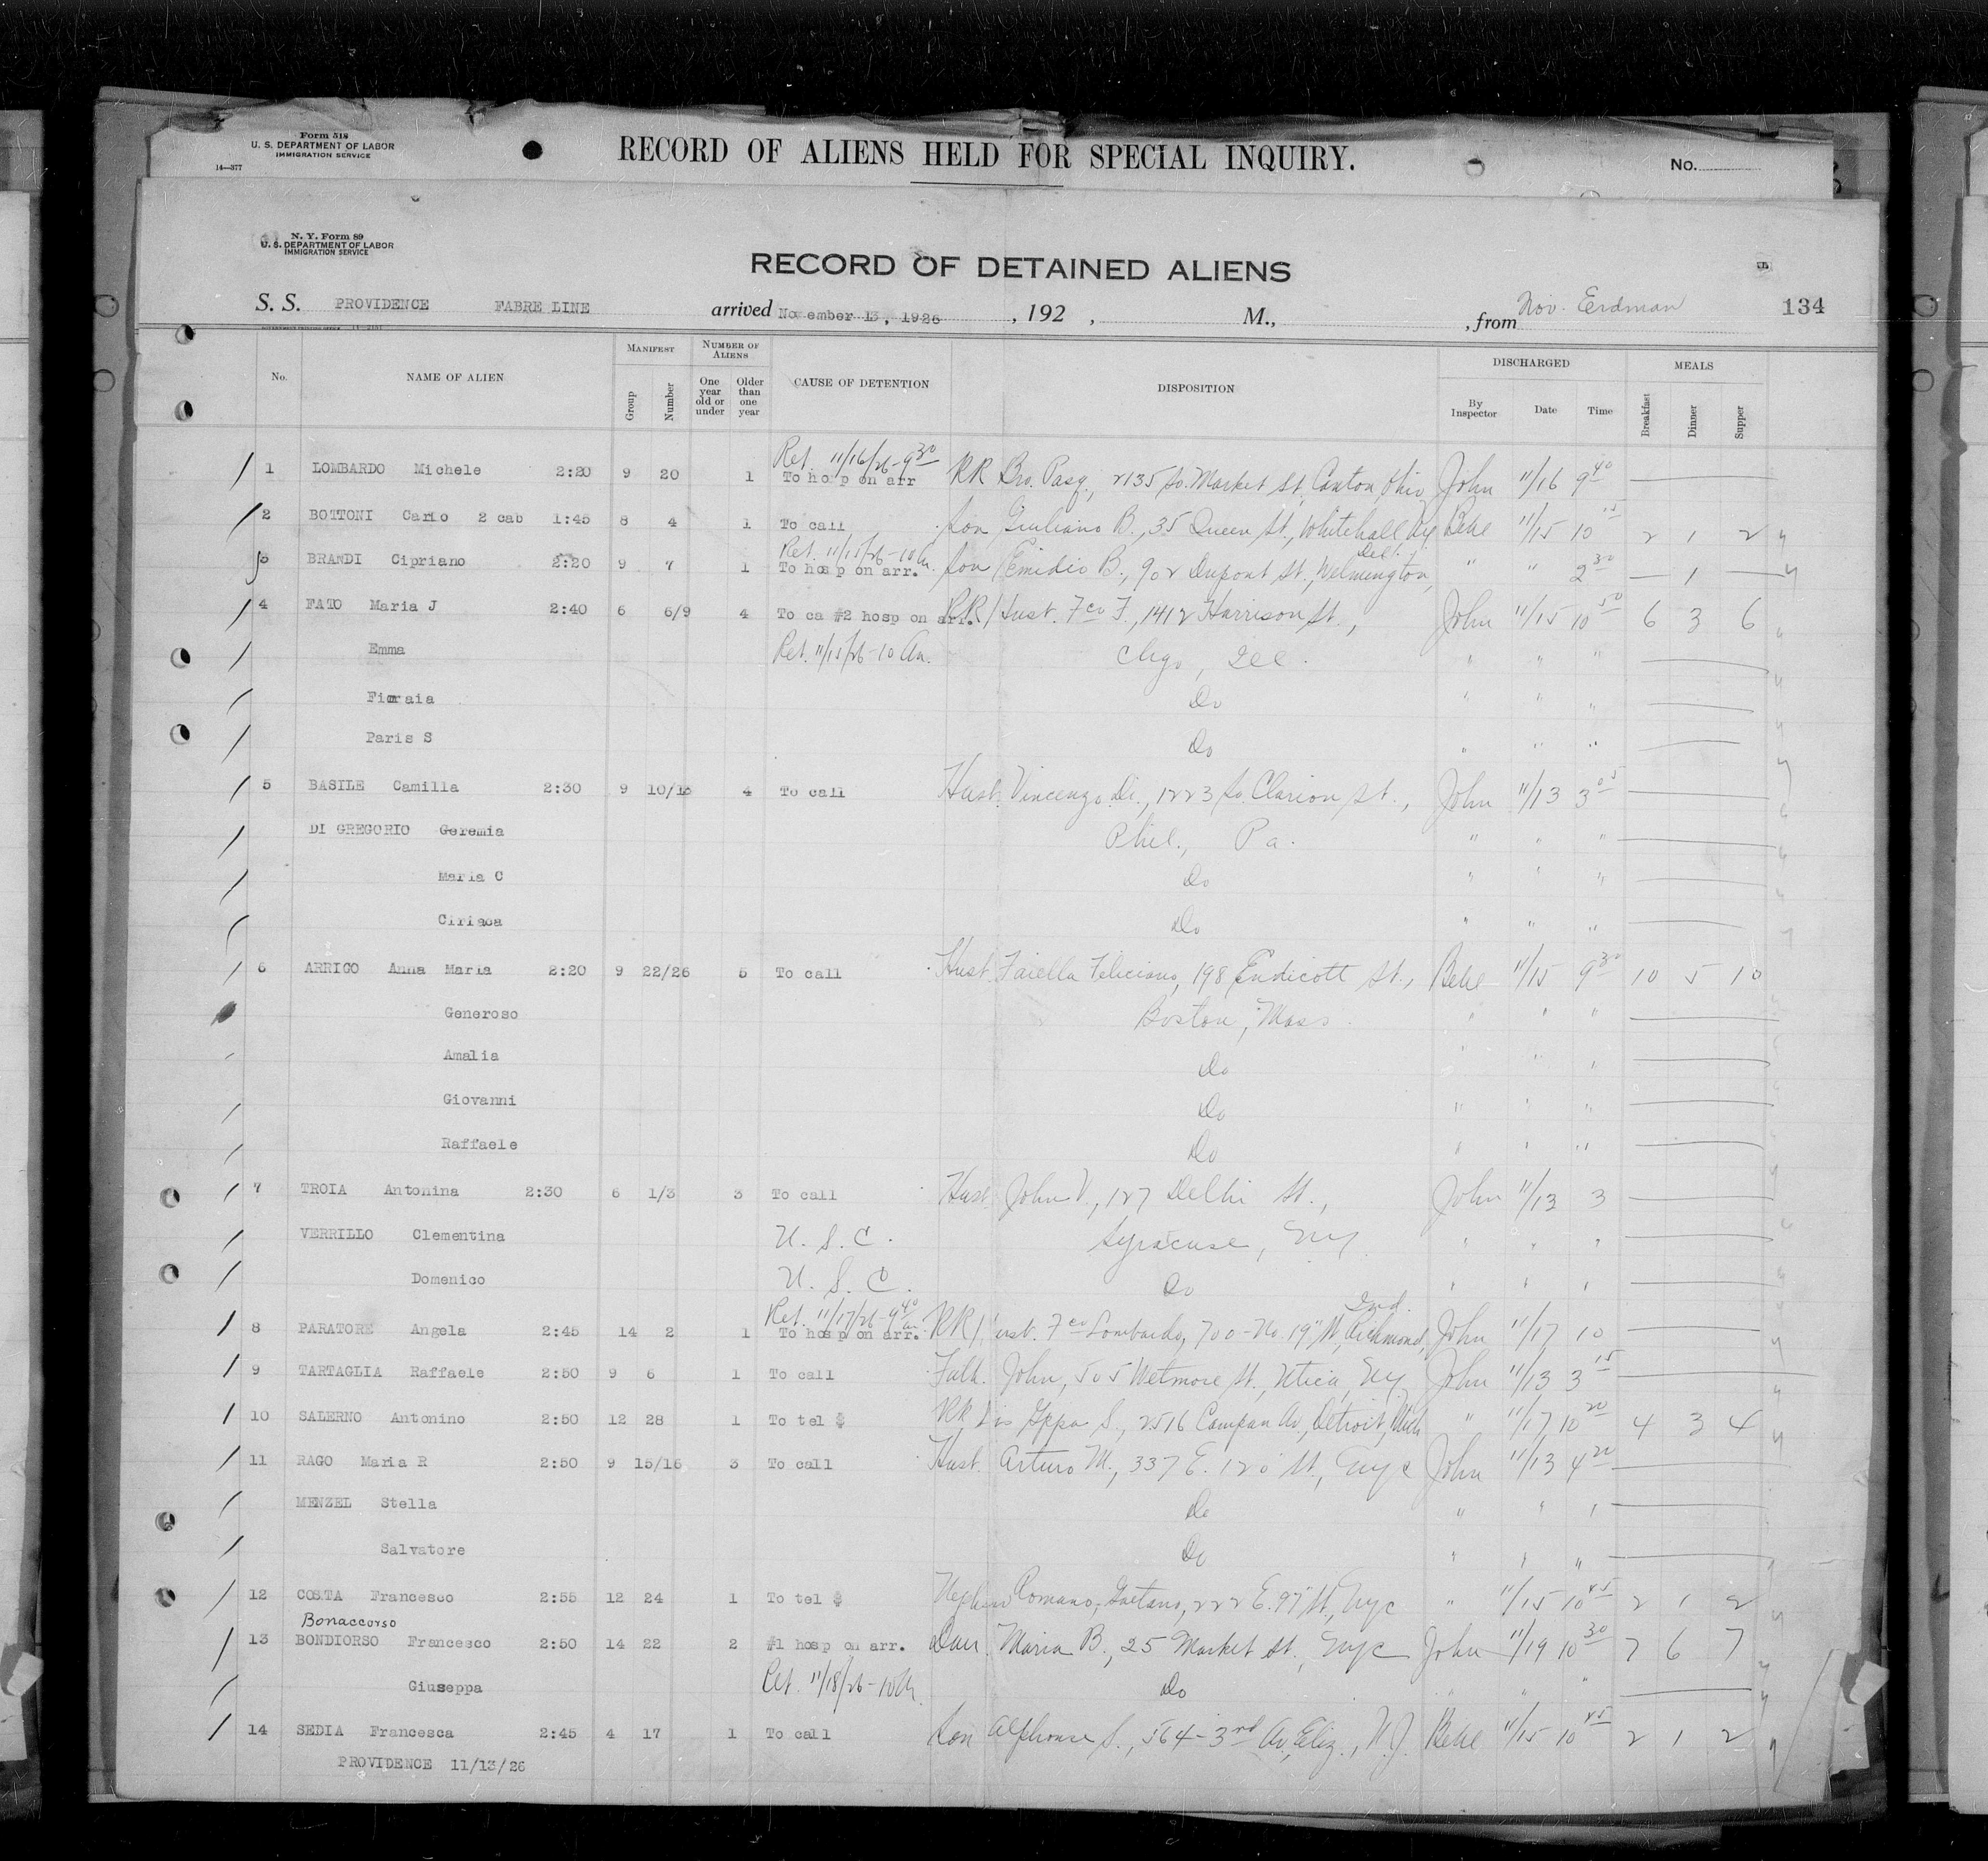 Form 518
U. S. DEPARTMENT OF LABOR
IMMIGRATION SERVICE
14—377
RECORD OF ALIENS HELD FOR SPECIAL INQUIRY.
No.
N. Y. Form 89
U. S. DEPARTMENT OF LABOR
IMMIGRATION SERVICE
RECORD OF DETAINED ALIENS
S. S. PROVIDENCE FABRE LINE arrived November 13, 1926, 192 , M., , from Nov. Erdman 134
No. NAME OF ALIEN MANIFEST Group Number NUMBER OF ALIENS One year old or under Older than one year CAUSE OF DETENTION DISPOSITION DISCHARGED By Inspector Date Time MEALS Breakfast Dinner Supper
Ret. 11/16/26 - 9 30
1 LOMBARDO Michele 2:20 9 20 1 To hosp on arr RR Bro. Pasq., 2135 So. Market St., Canton, Ohio John 11/16 9 40
2 BOTTONI Carlo 2 cab 1:45 8 4 1 To call Son Giuliano B., 35 Queen St., Whitehall Ny 11/15 10 15 2 1 2
Ret. 11/15/26 - 10 A. Del.
3 BRANDI Cipriano 2:20 9 7 1 To hosp on arr. Son Emidio B., 902 Dupont St., Wilmington, " " 2 30 1
4 FATO Maria J 2:40 6 6/9 4 To ca #2 hosp on arr. RR Hust. Fco F., 1412 Harrison St., John 11/15 10 50 6 3 6
Emma Ret. 11/15/26 - 10 Am. Chgo, Ill. " " "
Fioraia Do " " "
Paris S Do " " "
5 BASILE Camilla 2:30 9 10/13 4 To call Hust. Vincenzo Di., 1223 So. Clarion St., John 11/13 3 05
DI GREGORIO Geremia Phil., Pa. " " "
Maria C Do " " "
Ciriaca Do " " "
6 ARRIGO Anna Maria 2:20 9 22/26 5 To call Hust. Faiella Feliciano, 198 Endicott St., 11/15 9 30 10 5 10
Generoso Boston, Mass. " " "
Amalia Do " " "
Giovanni Do " " "
Raffaele Do " " "
7 TROIA Antonina 2:30 6 1/3 3 To call Hust. John V., 127 Delhi St., John 11/13 3
VERRILLO Clementina U. S. C. Syracuse, Ny " " "
Domenico U. S. C. Do " " "
Ret. 11/17/26 - 9 40 am. Ind.
8 PARATORE Angela 2:45 14 2 1 To hosp on arr. RR Hust. Fco Lombardo, 700 - No. 19" St., Richmond, John 11/17 10
9 TARTAGLIA Raffaele 2:50 9 6 1 To call Fath. John, 505 Wetmore St., Utica, Ny John 11/13 3 15
10 SALERNO Antonino 2:50 12 28 1 To tel $ RR Sis Gppa S., 2516 Campau Av., Detroit, Mich " 11/17 10 20 4 3 4
11 RAGO Maria R 2:50 9 15/16 3 To call Hust. Arturo M., 337 E. 120 St., Nyc John 11/13 4 20
MENZEL Stella Do " " "
Salvatore Do " " "
12 COSTA Francesco 2:55 12 24 1 To tel $ Nephew Romano, Gaetano, 222 E. 97" St., Nyc " 11/15 10 45 2 1 2
Bonaccorso
13 BONDIORSO Francesco 2:50 14 22 2 #1 hosp on arr. Dau. Maria B., 25 Market St., Nyc John 11/19 10 30 7 6 7
Giuseppa Ret. 11/18/26 - 10 A. Do " " "
14 SEDIA Francesca 2:45 4 17 1 To call Son Alphonse S., 564 - 3rd Av., Eliz., N.J. 11/15 10 45 2 1 2
PROVIDENCE 11/13/26